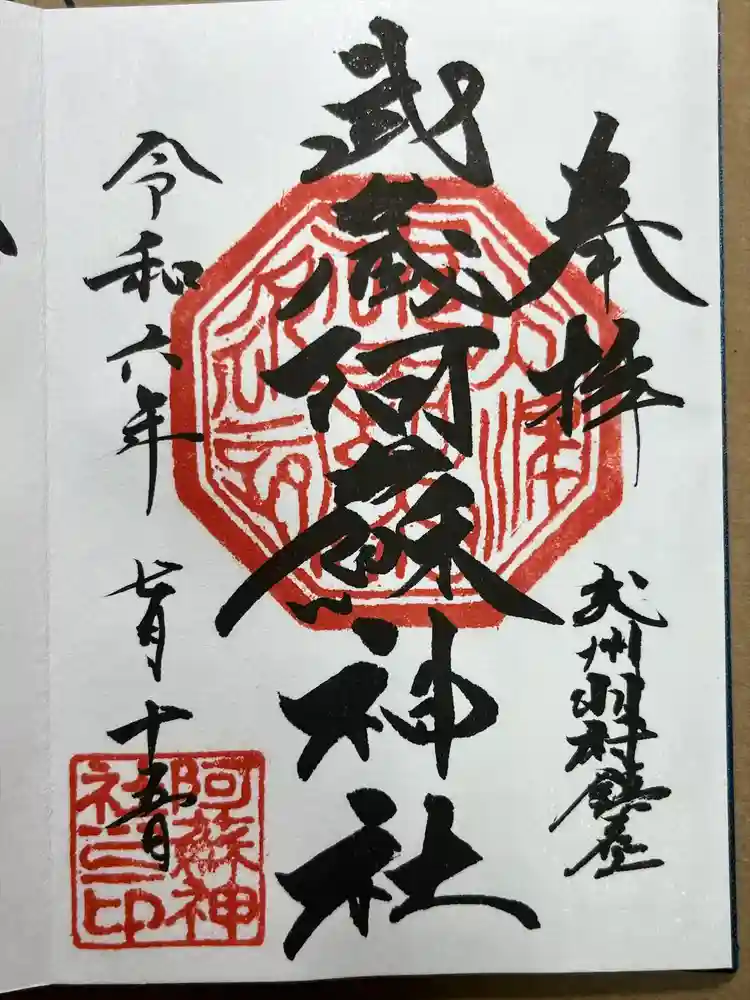 奉拝
武州羽村鎮座
武蔵阿蘇神社
令和六年
七月十五日
阿蘇神
社之印